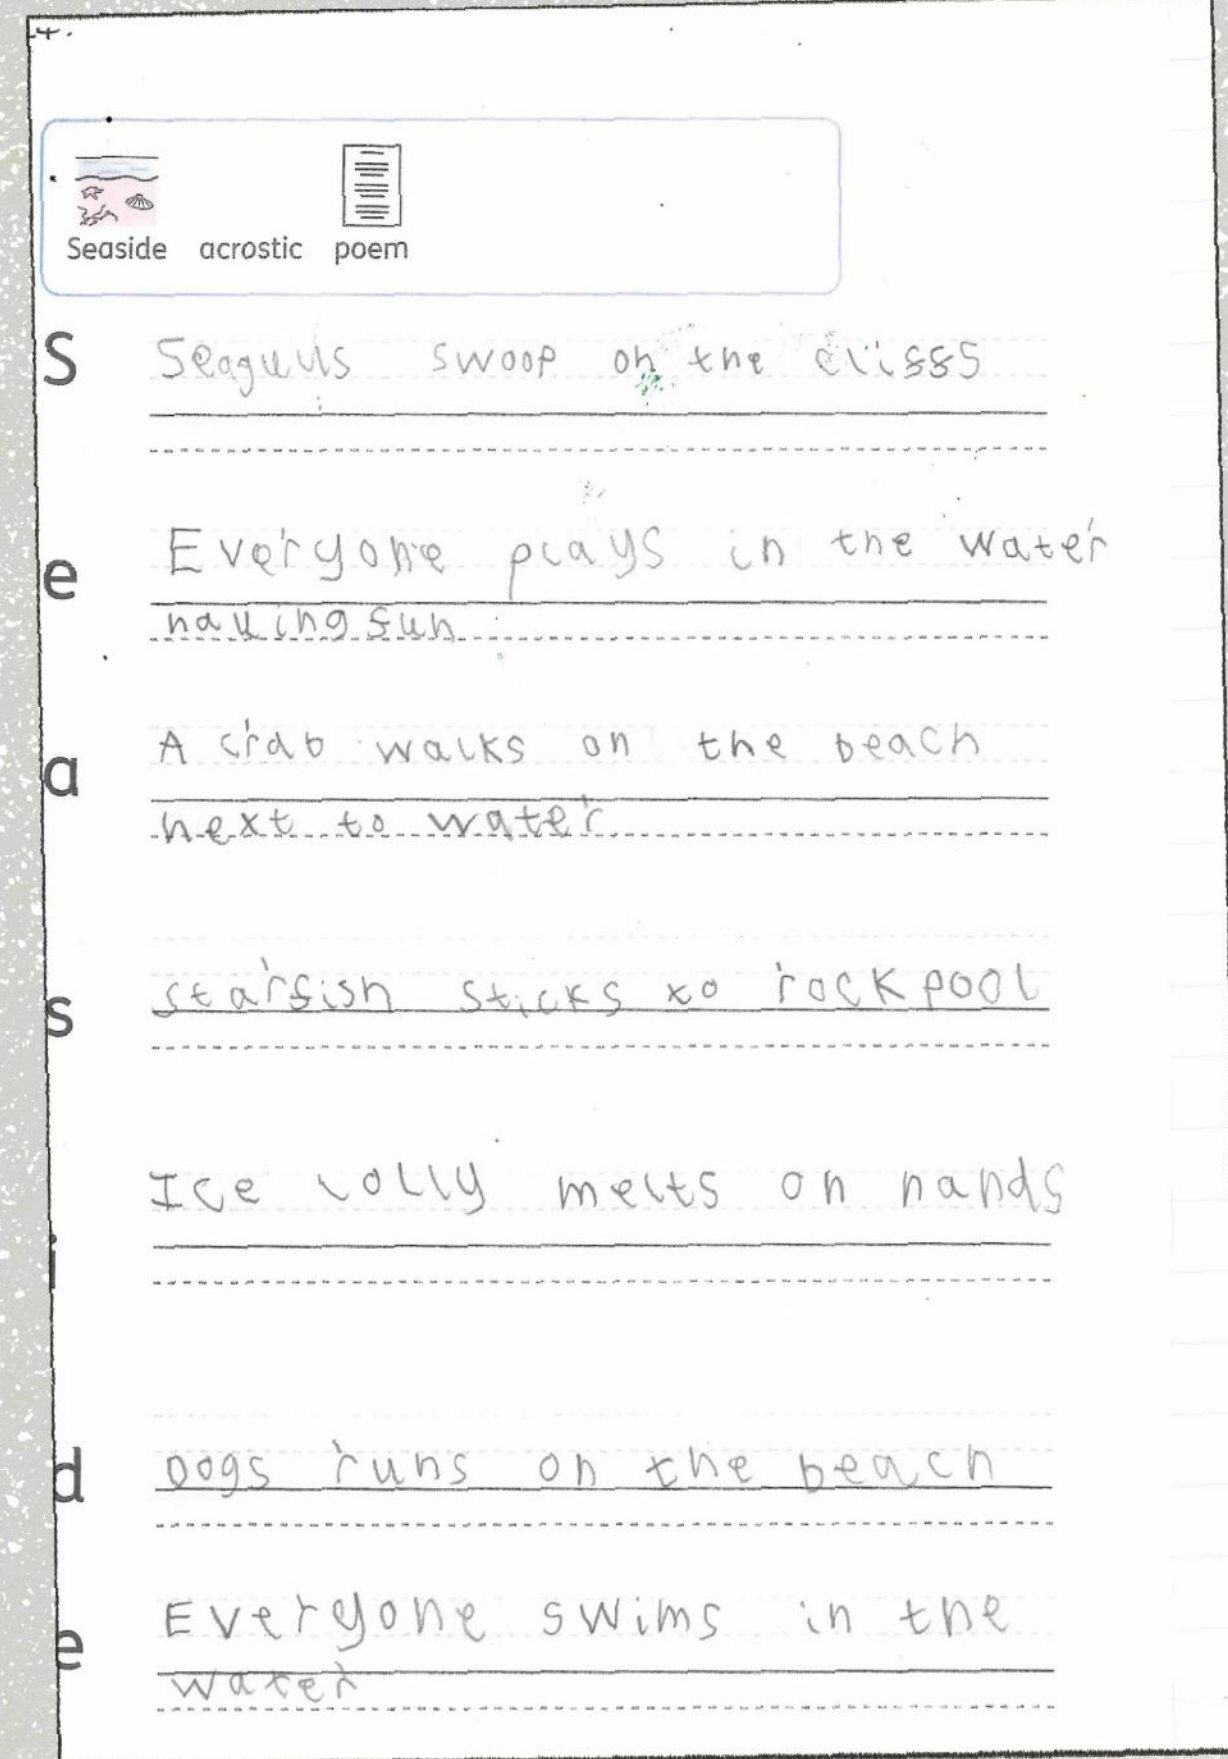 Seaside acrostic poem
S Seagulls swoop on the cliffs
e Everyone plays in the water
having fun
a A crab walks on the beach
next to water
s starfish sticks to rock pool
i Ice lolly melts on hands
d Dogs runs on the beach
e Everyone swims in the
water